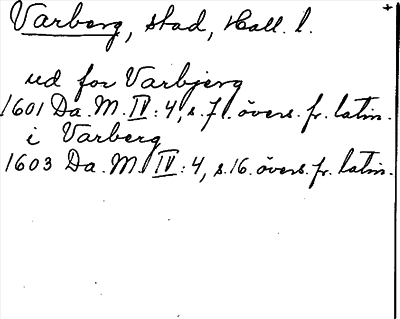 Varberg, stad, Hall. l.
ud for Varbjerg
1601 Da. M. IV: 4, s. 7. övers. fr. latin.
i Varberg
1603 Da. M. IV: 4, s. 16. övers. fr. latin.